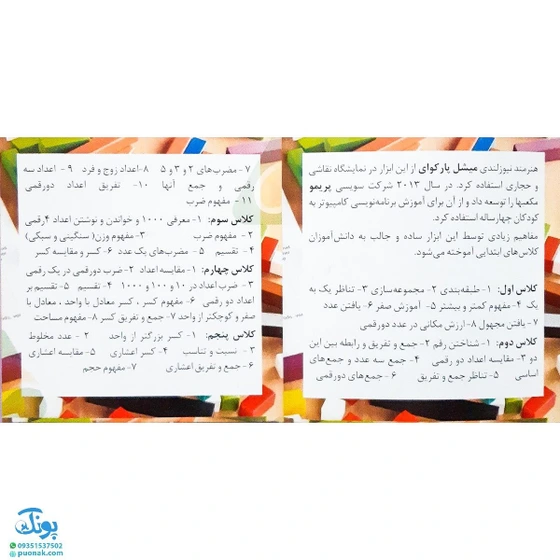 هنرمند نیوزلندی میشل پارکوای از این ابزار در نمایشگاه نقاشی
و حجاری استفاده کرد. در سال ۲۰۱۳ شرکت سویسی پریمو
مکعبها را توسعه داد و از آن برای آموزش برنامه‌نویسی کامپیوتر به
کودکان چهارساله استفاده کرد.
مفاهیم زیادی توسط این ابزار ساده و جالب به دانش‌آموزان
کلاس‌های ابتدایی آموخته می‌شود.
کلاس اول: ۱- طبقه‌بندی ۲- مجموعه‌سازی ۳- تناظر یک به
یک ۴- مفهوم کمتر و بیشتر ۵- آموزش صفر ۶- یافتن عدد
۷- یافتن مجهول ۸- ارزش مکانی در عدد دورقمی
کلاس دوم: ۱- شناختن رقم ۲- جمع و تفریق و رابطه بین این
دو ۳- مقایسه اعداد دو رقمی ۴- جمع سه عدد و جمع‌های
اساسی ۵- تناظر جمع و تفریق ۶- جمع‌های دورقمی
۷- مضرب‌های ۲ و ۳ و ۵ ۸- اعداد زوج و فرد ۹- اعداد سه
رقمی و جمع آنها ۱۰- تفریق اعداد دورقمی
۱۱- مفهوم ضرب
کلاس سوم: ۱- معرفی ۱۰۰۰ و خواندن و نوشتن اعداد ۴رقمی
۲- مفهوم ضرب ۳- مفهوم وزن( سنگینی و سبکی)
۴- تقسیم ۵- مضرب‌های یک عدد ۶- کسر و مقایسه کسر
کلاس چهارم: ۱- مقایسه اعداد ۲- ضرب دورقمی در یک رقمی
۳- ضرب اعداد در ۱۰ و ۱۰۰ و ۱۰۰۰ ۴- تقسیم ۵- تقسیم بر
اعداد دو رقمی ۶- مفهوم کسر ، کسر معادل با واحد ، معادل با
صفر و کوچکتر از واحد ۷- جمع و تفریق کسر ۸- مفهوم مساحت
کلاس پنجم: ۱- کسر بزرگتر از واحد ۲- عدد مخلوط
۳- نسبت و تناسب ۴- کسر اعشاری ۵- مقایسه اعشاری
۶- جمع و تفریق اعشاری ۷- مفهوم حجم
پونک
09351537502
punak.com